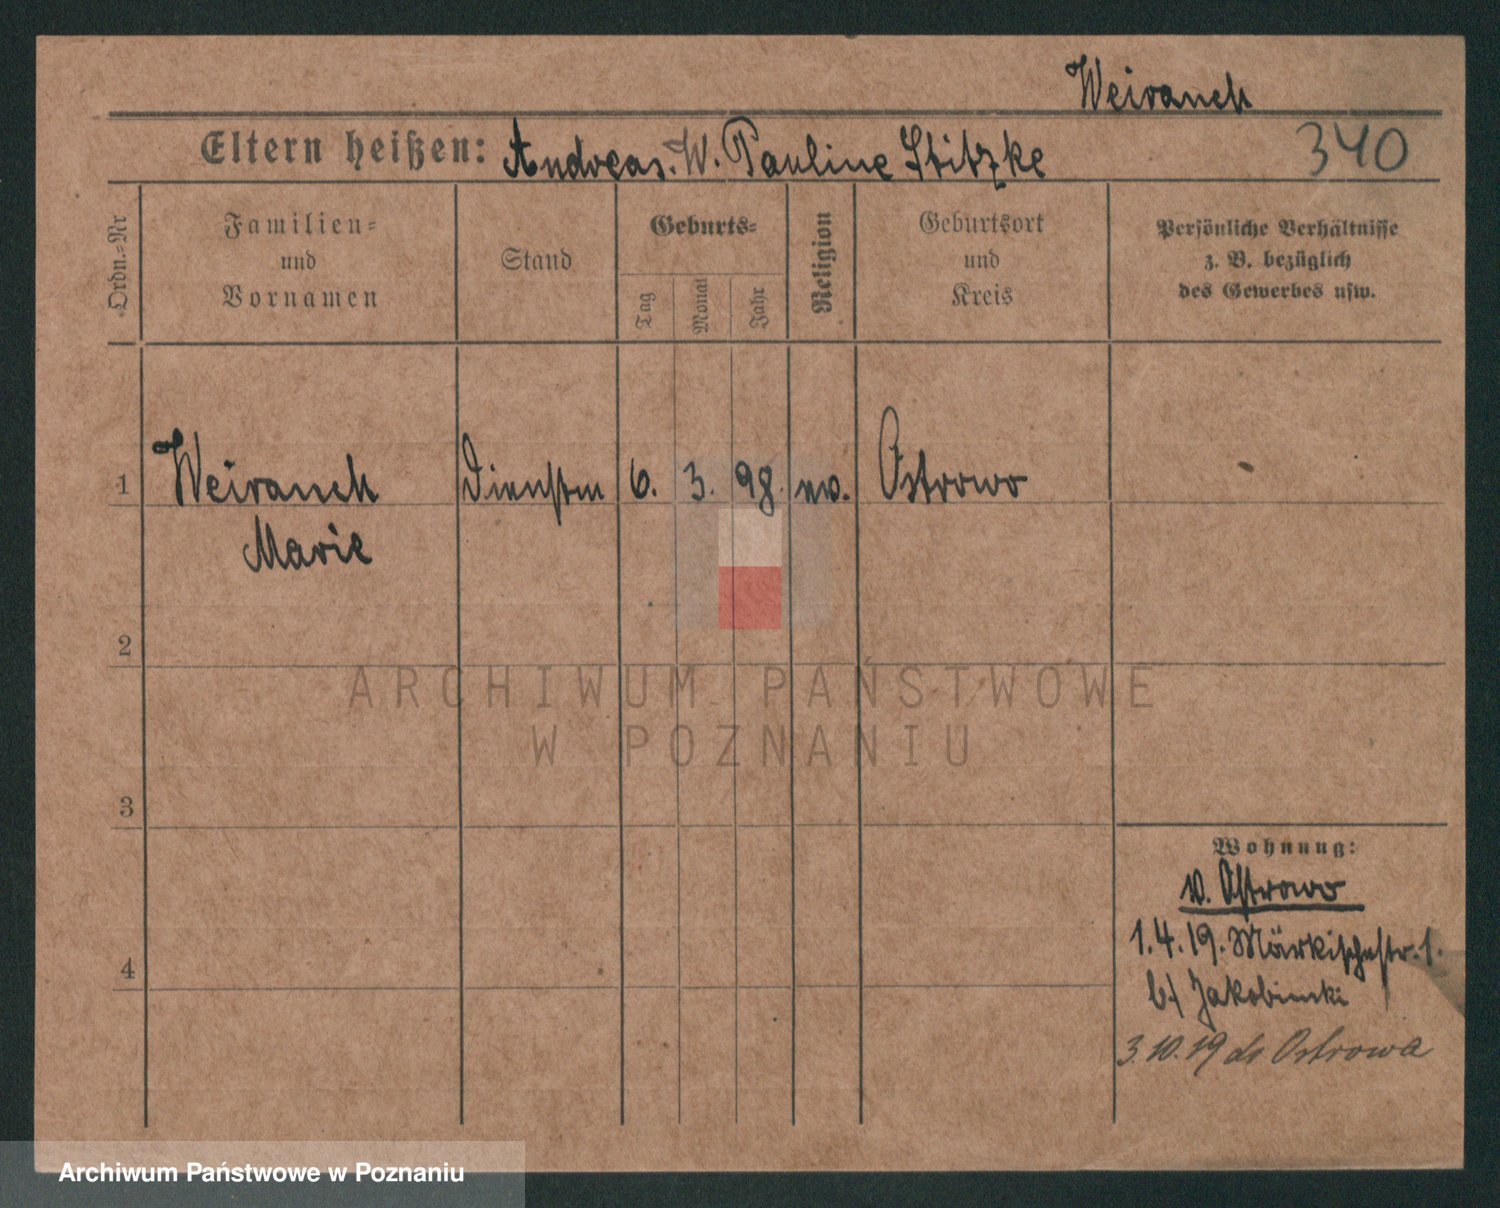 Weirauch
Eltern heißen: Andreas. W. Pauline Stitzke
340
Ordn.=Nr
Familien=
und
Vornamen
Stand
Geburts=
Tag
Monat
Jahr
Religion
Geburtsort
und
Kreis
Persönliche Verhältnisse
z. B. bezüglich
des Gewerbes usw.
1 Weirauch Dienstm 6. 3. 98. ev. Ostrowo
Marie
2
ARCHIWUM PAŃSTWOWE
W POZNANIU
3
Wohnung:
v. Ostrowo
1.4.19. Märkischestr. 1.
b/ Jakobinski
4
3.10.19 Ostrowa
Archiwum Państwowe w Poznaniu